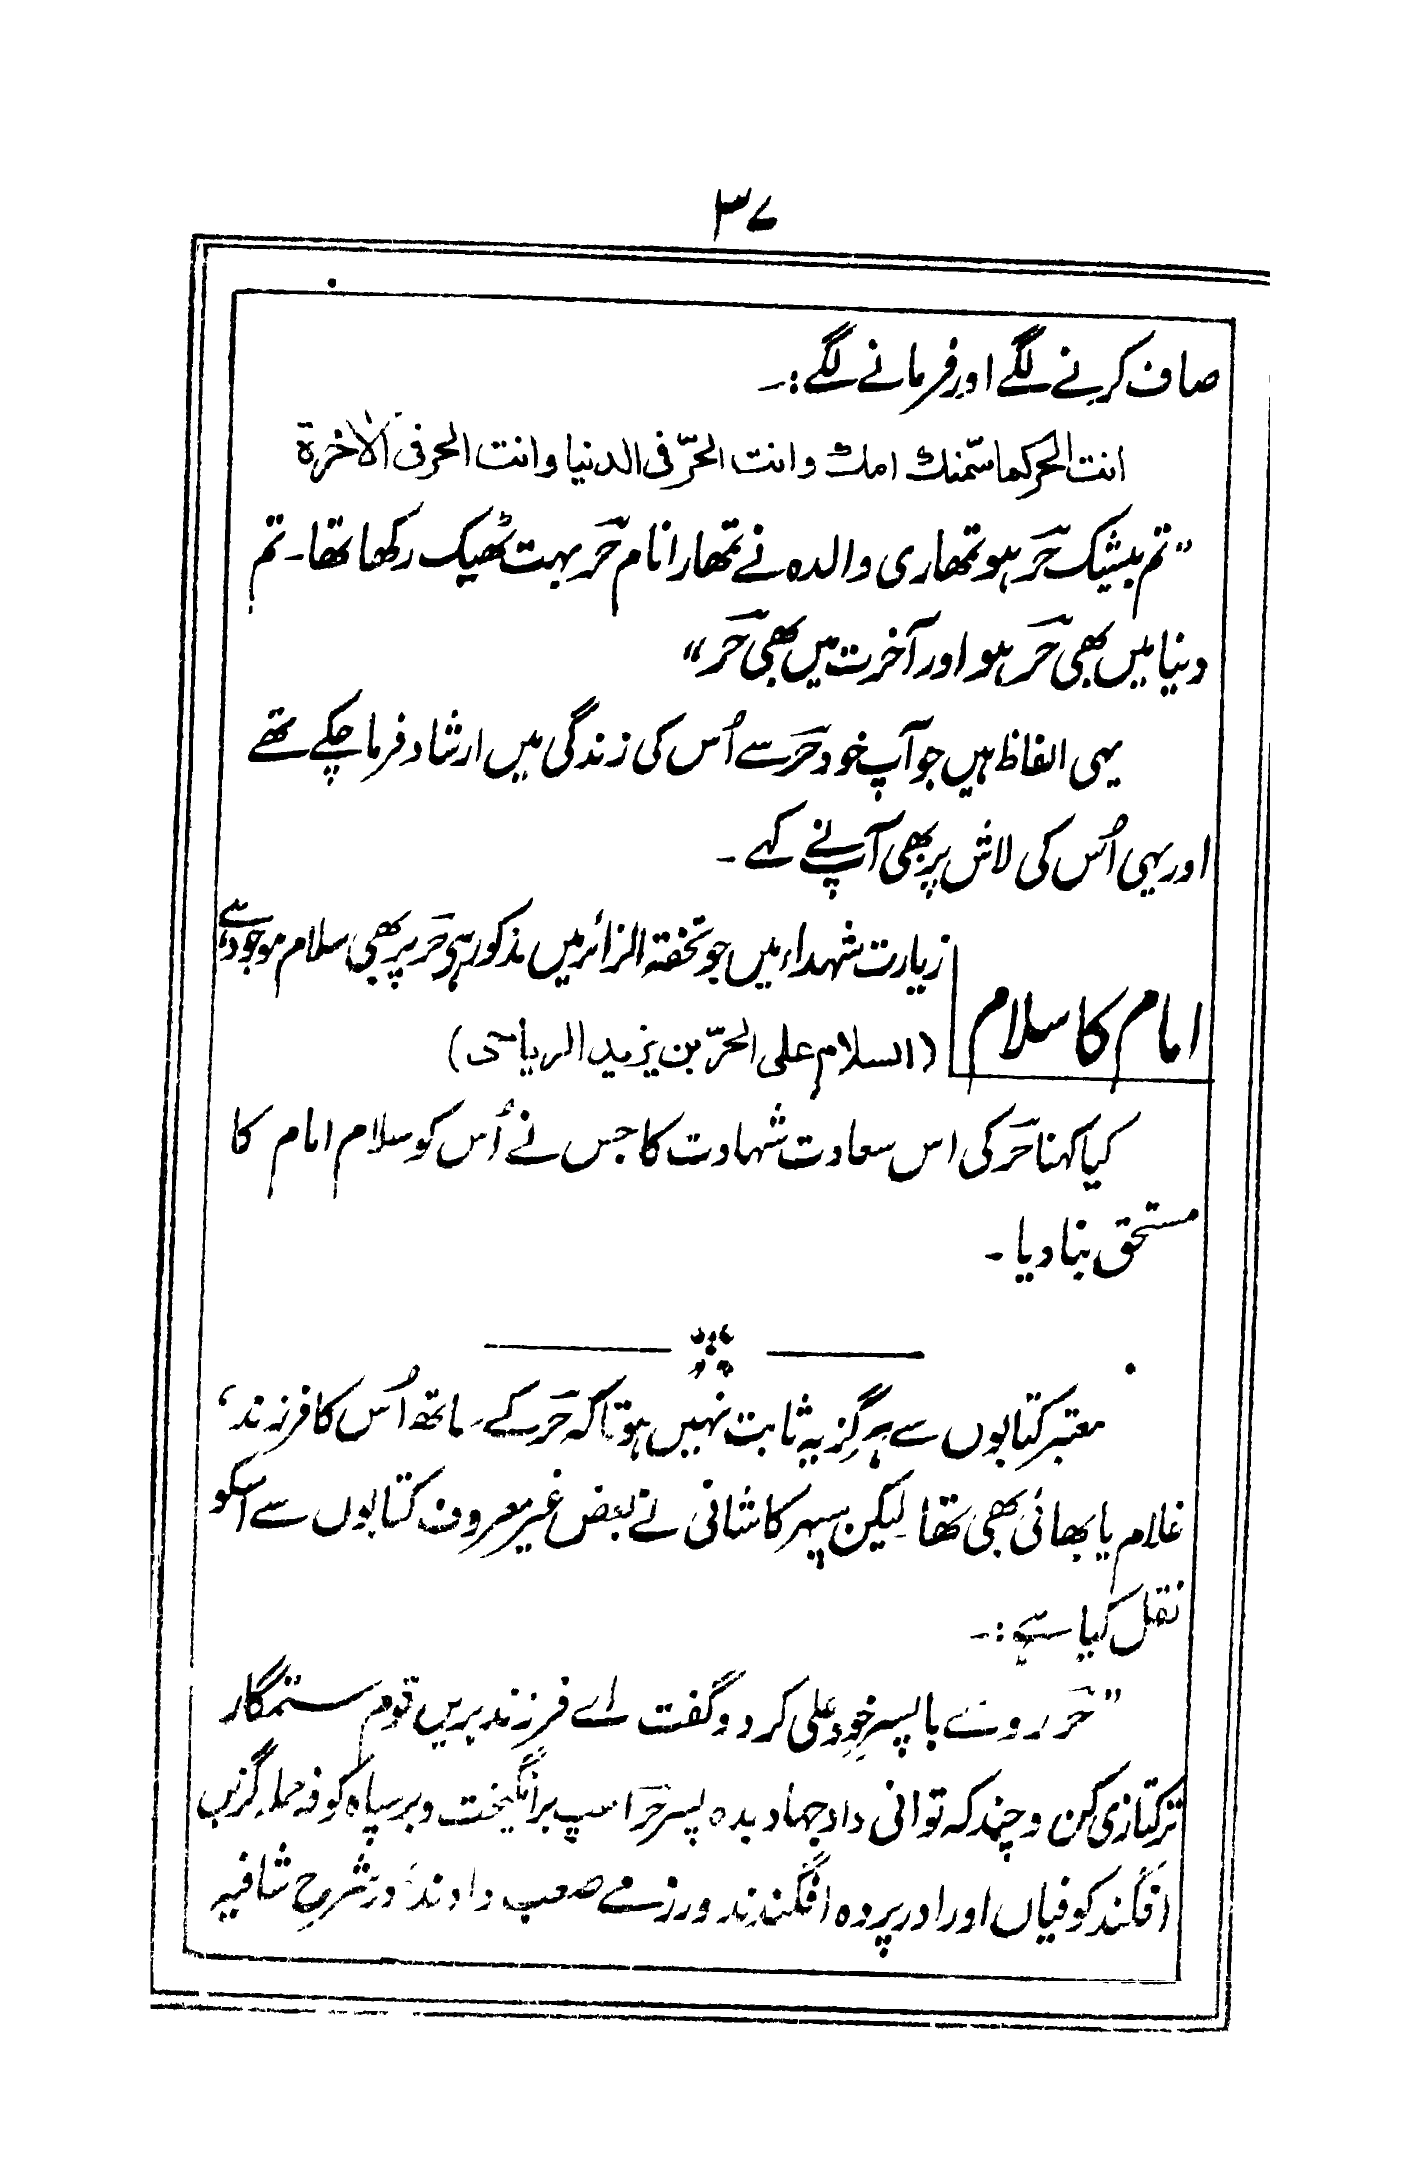 ۳۷
صاف کرنے لگے اور فرمانے لگے:۔
انت الحر کما سمّتك امك وانت الحرّ فی الدنیا وانت الحر فی الاٰخرۃ
"تم بیشک حُر ہو تمھاری والدہ نے تمھارا نام حُر بہت ٹھیک رکھا تھا۔ تم
دنیا میں بھی حُر ہو اور آخرت میں بھی حُر"
یہی الفاظ ہیں جو آپ خود حُر سے اُس کی زندگی میں ارشاد فرما چکے تھے
اور یہی اُس کی لاش پر بھی آپ نے کہے۔
امام کا سلام
زیارت شہداء میں جو تحفۃ الزائر میں مذکور ہی حُر پر بھی سلام موجود ہے
(السلام علی الحرّ بن یزید الریاحی)
کیا کہنا حُر کی اس سعادت شہادت کا جس نے اُس کو سلام امام کا
مستحق بنا دیا۔
معتبر کتابوں سے ہرگز یہ ثابت نہیں ہوتا کہ حُر کے ساتھ اُس کا فرزند،
غلام یا بھائی بھی تھا لیکن سپہر کاشانی نے بعض غیر معروف کتابوں سے اسکو
نقل کیا ہے:۔
"حُر روئے با پسر خود علی کرد و گفت اے فرزند بریں قوم ستمگار
ترکتازی کن و چند کہ توانی داد جہاد بدہ پسر حُر اسپ برانگیخت و بر سپاہ کوفہ حملہ گزیں
افگند کوفیاں اورا در پردہ افگندند و رزمے صعب دادند و در شرح شافیہ